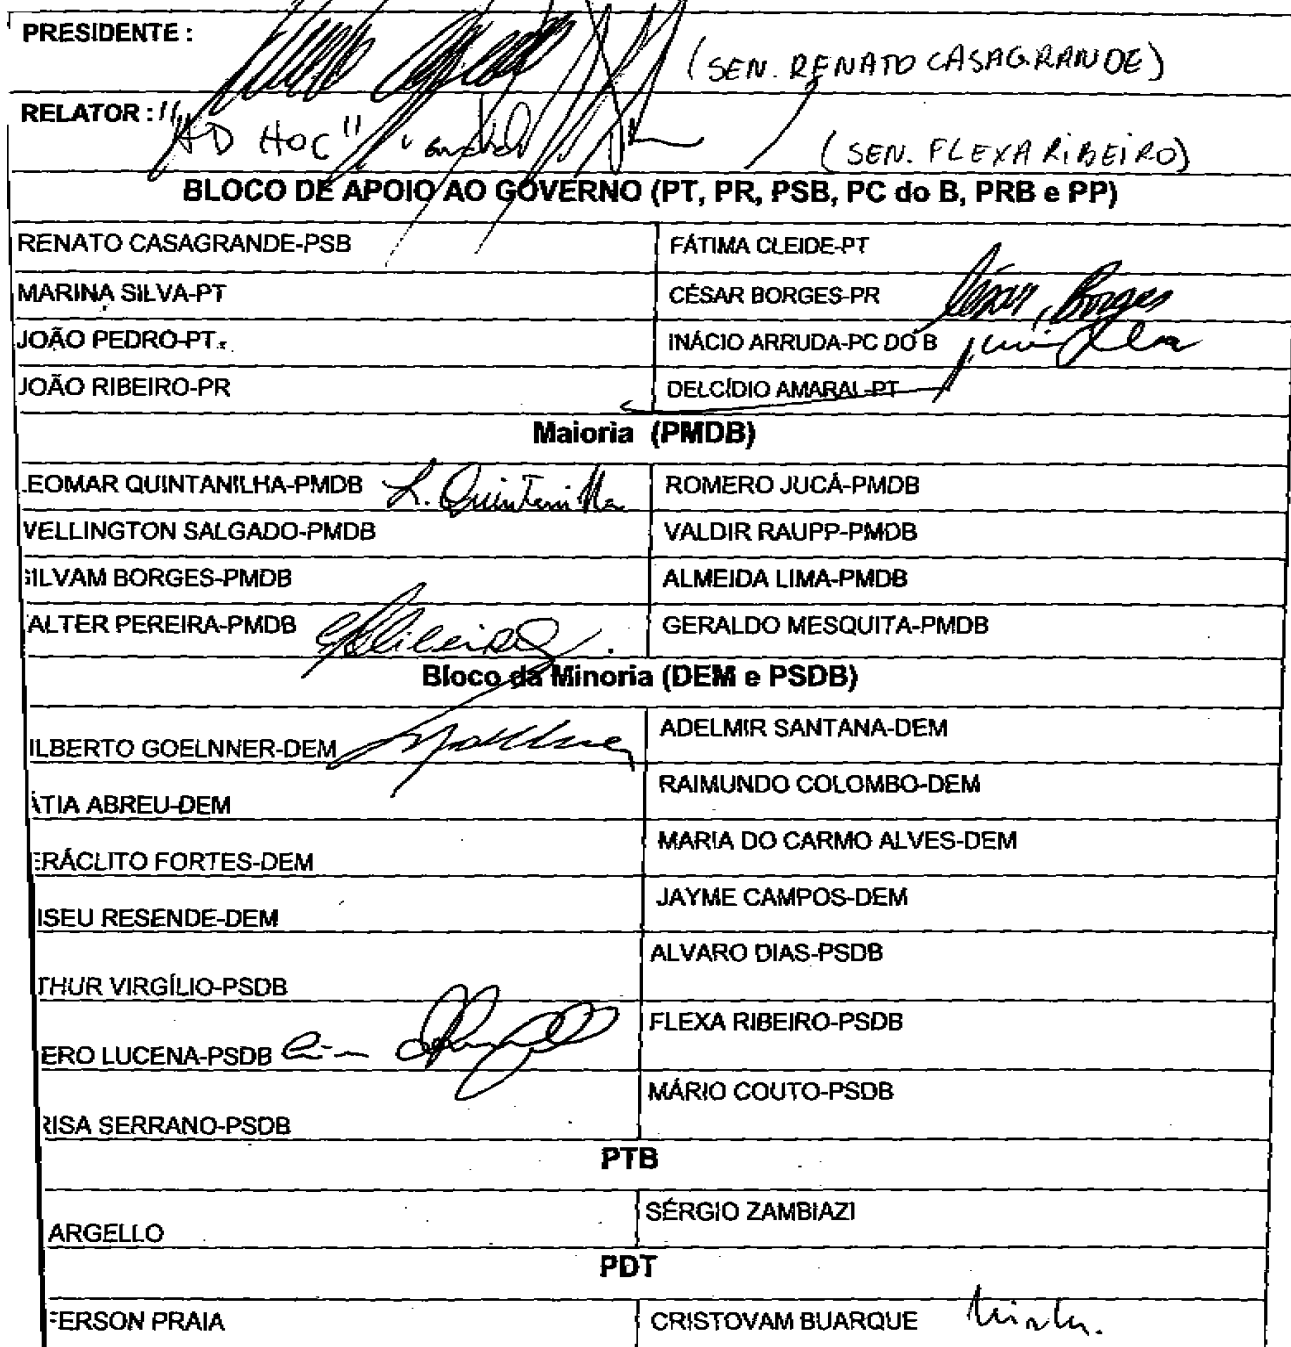 PRESIDENTE :
(SEN. RENATO CASAGRANDE)
RELATOR : "AD HOC"
(SEN. FLEXA RIBEIRO)
BLOCO DE APOIO AO GOVERNO (PT, PR, PSB, PC do B, PRB e PP)
RENATO CASAGRANDE-PSB
FÁTIMA CLEIDE-PT
MARINA SILVA-PT
CÉSAR BORGES-PR César Borges
JOÃO PEDRO-PT
INÁCIO ARRUDA-PC DO B
JOÃO RIBEIRO-PR
DELCÍDIO AMARAL-PT
Maioria (PMDB)
LEOMAR QUINTANILHA-PMDB L. Quintanilha
ROMERO JUCÁ-PMDB
WELLINGTON SALGADO-PMDB
VALDIR RAUPP-PMDB
GILVAM BORGES-PMDB
ALMEIDA LIMA-PMDB
ALTER PEREIRA-PMDB
GERALDO MESQUITA-PMDB
Bloco da Minoria (DEM e PSDB)
ILBERTO GOELNNER-DEM
ADELMIR SANTANA-DEM
ÁTIA ABREU-DEM
RAIMUNDO COLOMBO-DEM
ERÁCLITO FORTES-DEM
MARIA DO CARMO ALVES-DEM
ISEU RESENDE-DEM
JAYME CAMPOS-DEM
THUR VIRGÍLIO-PSDB
ALVARO DIAS-PSDB
ERO LUCENA-PSDB
FLEXA RIBEIRO-PSDB
RISA SERRANO-PSDB
MÁRIO COUTO-PSDB
PTB
ARGELLO
SÉRGIO ZAMBIAZI
PDT
FERSON PRAIA
CRISTOVAM BUARQUE